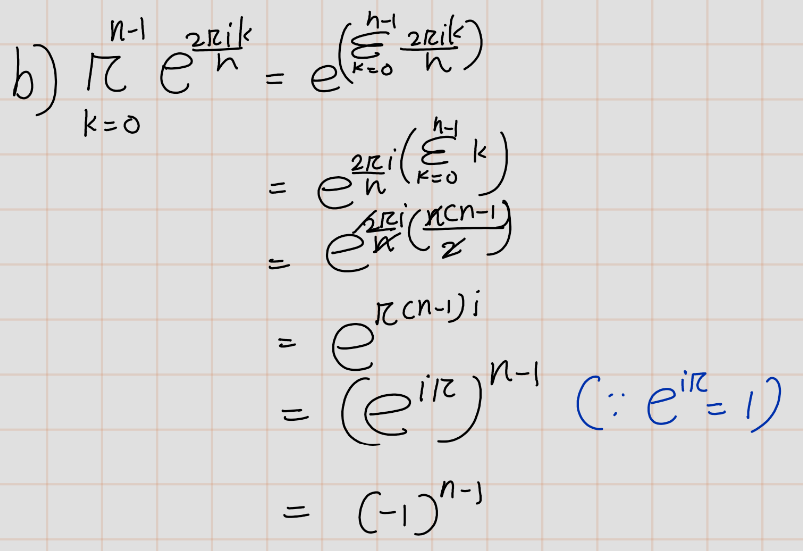 b) $\prod_{k=0}^{n-1} e^{\frac{2\pi i k}{n}} = e^{\left(\sum_{k=0}^{n-1} \frac{2\pi i k}{n}\right)}$
$= e^{\frac{2\pi i}{n}\left(\sum_{k=0}^{n-1} k\right)}$
$= e^{\frac{\cancel{2}\pi i}{\cancel{n}}\left(\frac{\cancel{n}(n-1)}{\cancel{2}}\right)}$
$= e^{\pi(n-1)i}$
$= \left(e^{i\pi}\right)^{n-1} \quad (\because e^{i\pi} = 1)$
$= (-1)^{n-1}$